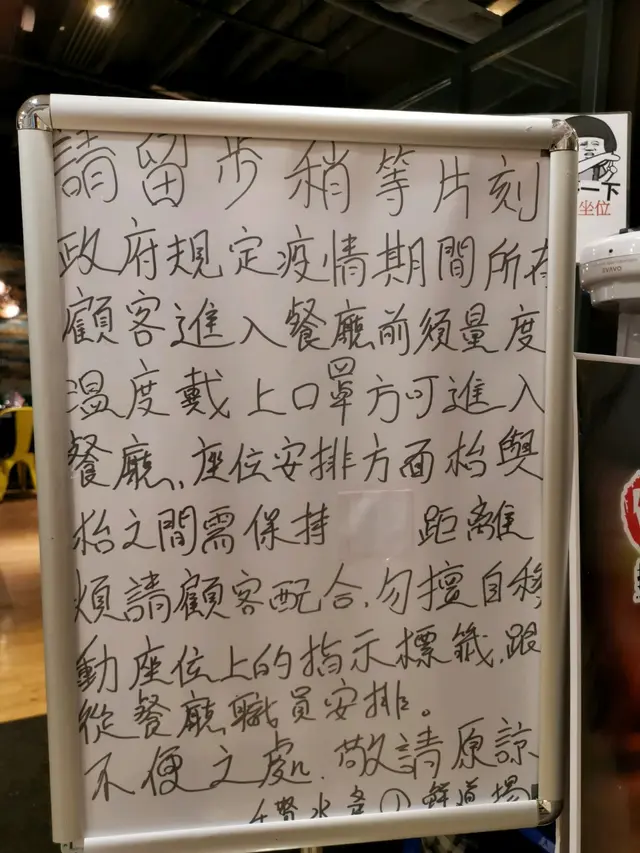 請留步稍等片刻
政府規定疫情期間所有
顧客進入餐廳前須量度
溫度戴上口罩方可進入
餐廳,座位安排方面枱與
枱之間需保持 距離
煩請顧客配合,勿擅自移
動座位上的指示標籤,跟
從餐廳職員安排。
不便之處,敬請原諒
鮮道場
一下
坐位
SVAVO